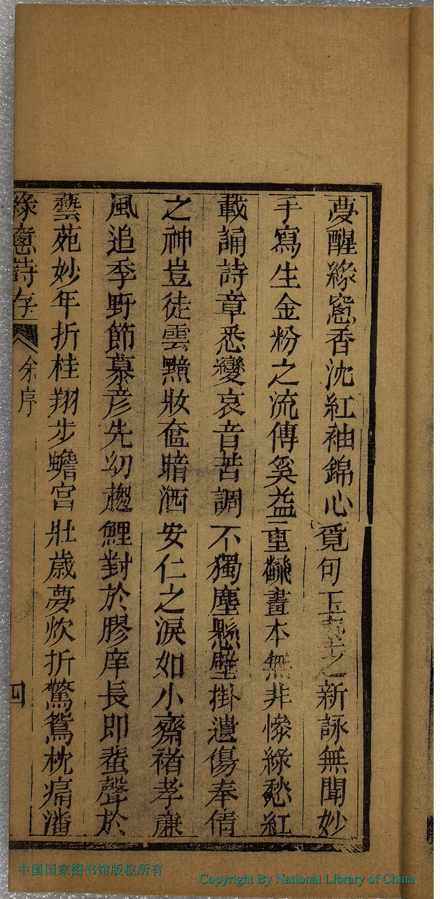 夢醒綠窻香沈紅袖錦心覓句玉臺之新詠無聞妙
手寫生金粉之流傳奚益重繙畫本無非慘綠愁紅
載誦詩章悉變哀音苦調不獨塵懸壁掛遺傷奉倩
之神豈徒雲黯妝奩暗洒安仁之淚如小齋褚孝廉
風追季野節慕彥先幼趨鯉對於膠庠長即蜚聲於
藝苑妙年折桂翔步蟾宮壯歲夢炊折驚鴛枕痛潘
綠窻詩存 余序 四
中国国家图书馆版权所有
Copyright By National Library of China